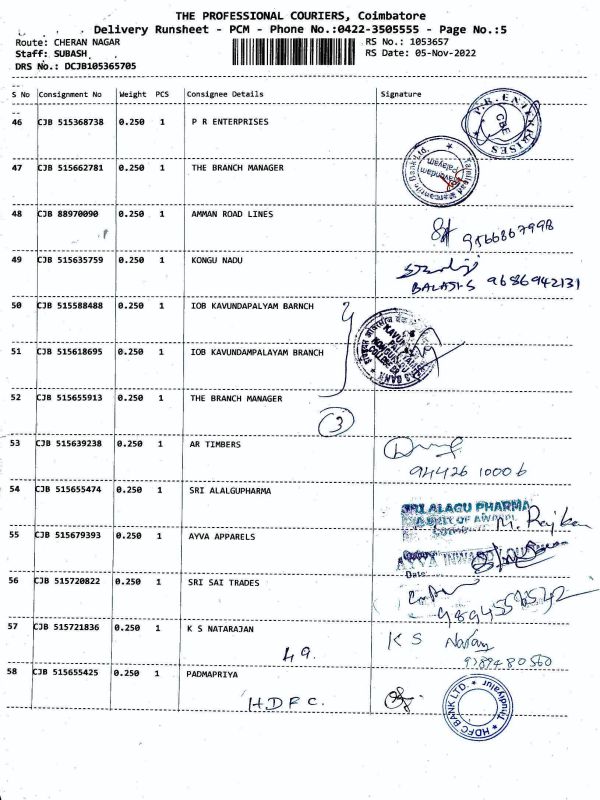 THE PROFESSIONAL COURIERS, Coimbatore
Delivery Runsheet - PCM - Phone No.:0422-3505555 - Page No.:5
Route: CHERAN NAGAR
RS No.: 1053657
Staff: SUBASH
RS Date: 05-Nov-2022
DRS No.: DCJB105365705
S No Consignment No Weight PCS Consignee Details Signature
46 CJB 515368738 0.250 1 P R ENTERPRISES
P.R. ENTERPRISES CBE
47 CJB 515662781 0.250 1 THE BRANCH MANAGER
Tamilnad Mercantile Bank Ltd.
48 CJB 88970090 0.250 1 AMMAN ROAD LINES
9566867998
49 CJB 515635759 0.250 1 KONGU NADU
BALAJI-S 9686942131
50 CJB 515588488 0.250 1 IOB KAVUNDAPALYAM BARNCH
51 CJB 515618695 0.250 1 IOB KAVUNDAMPALAYAM BRANCH
52 CJB 515655913 0.250 1 THE BRANCH MANAGER
3
53 CJB 515639238 0.250 1 AR TIMBERS
94426 10006
54 CJB 515655474 0.250 1 SRI ALALGUPHARMA
SRI ALAGU PHARMA
A UNIT OF
M. Rajkan
55 CJB 515679393 0.250 1 AYVA APPARELS
AYVA
Date:
56 CJB 515720822 0.250 1 SRI SAI TRADES
57 CJB 515721836 0.250 1 K S NATARAJAN
K S
49.
9789480560
58 CJB 515655425 0.250 1 PADMAPRIYA
HDFC.
HDFC BANK LTD. Thudiyalur